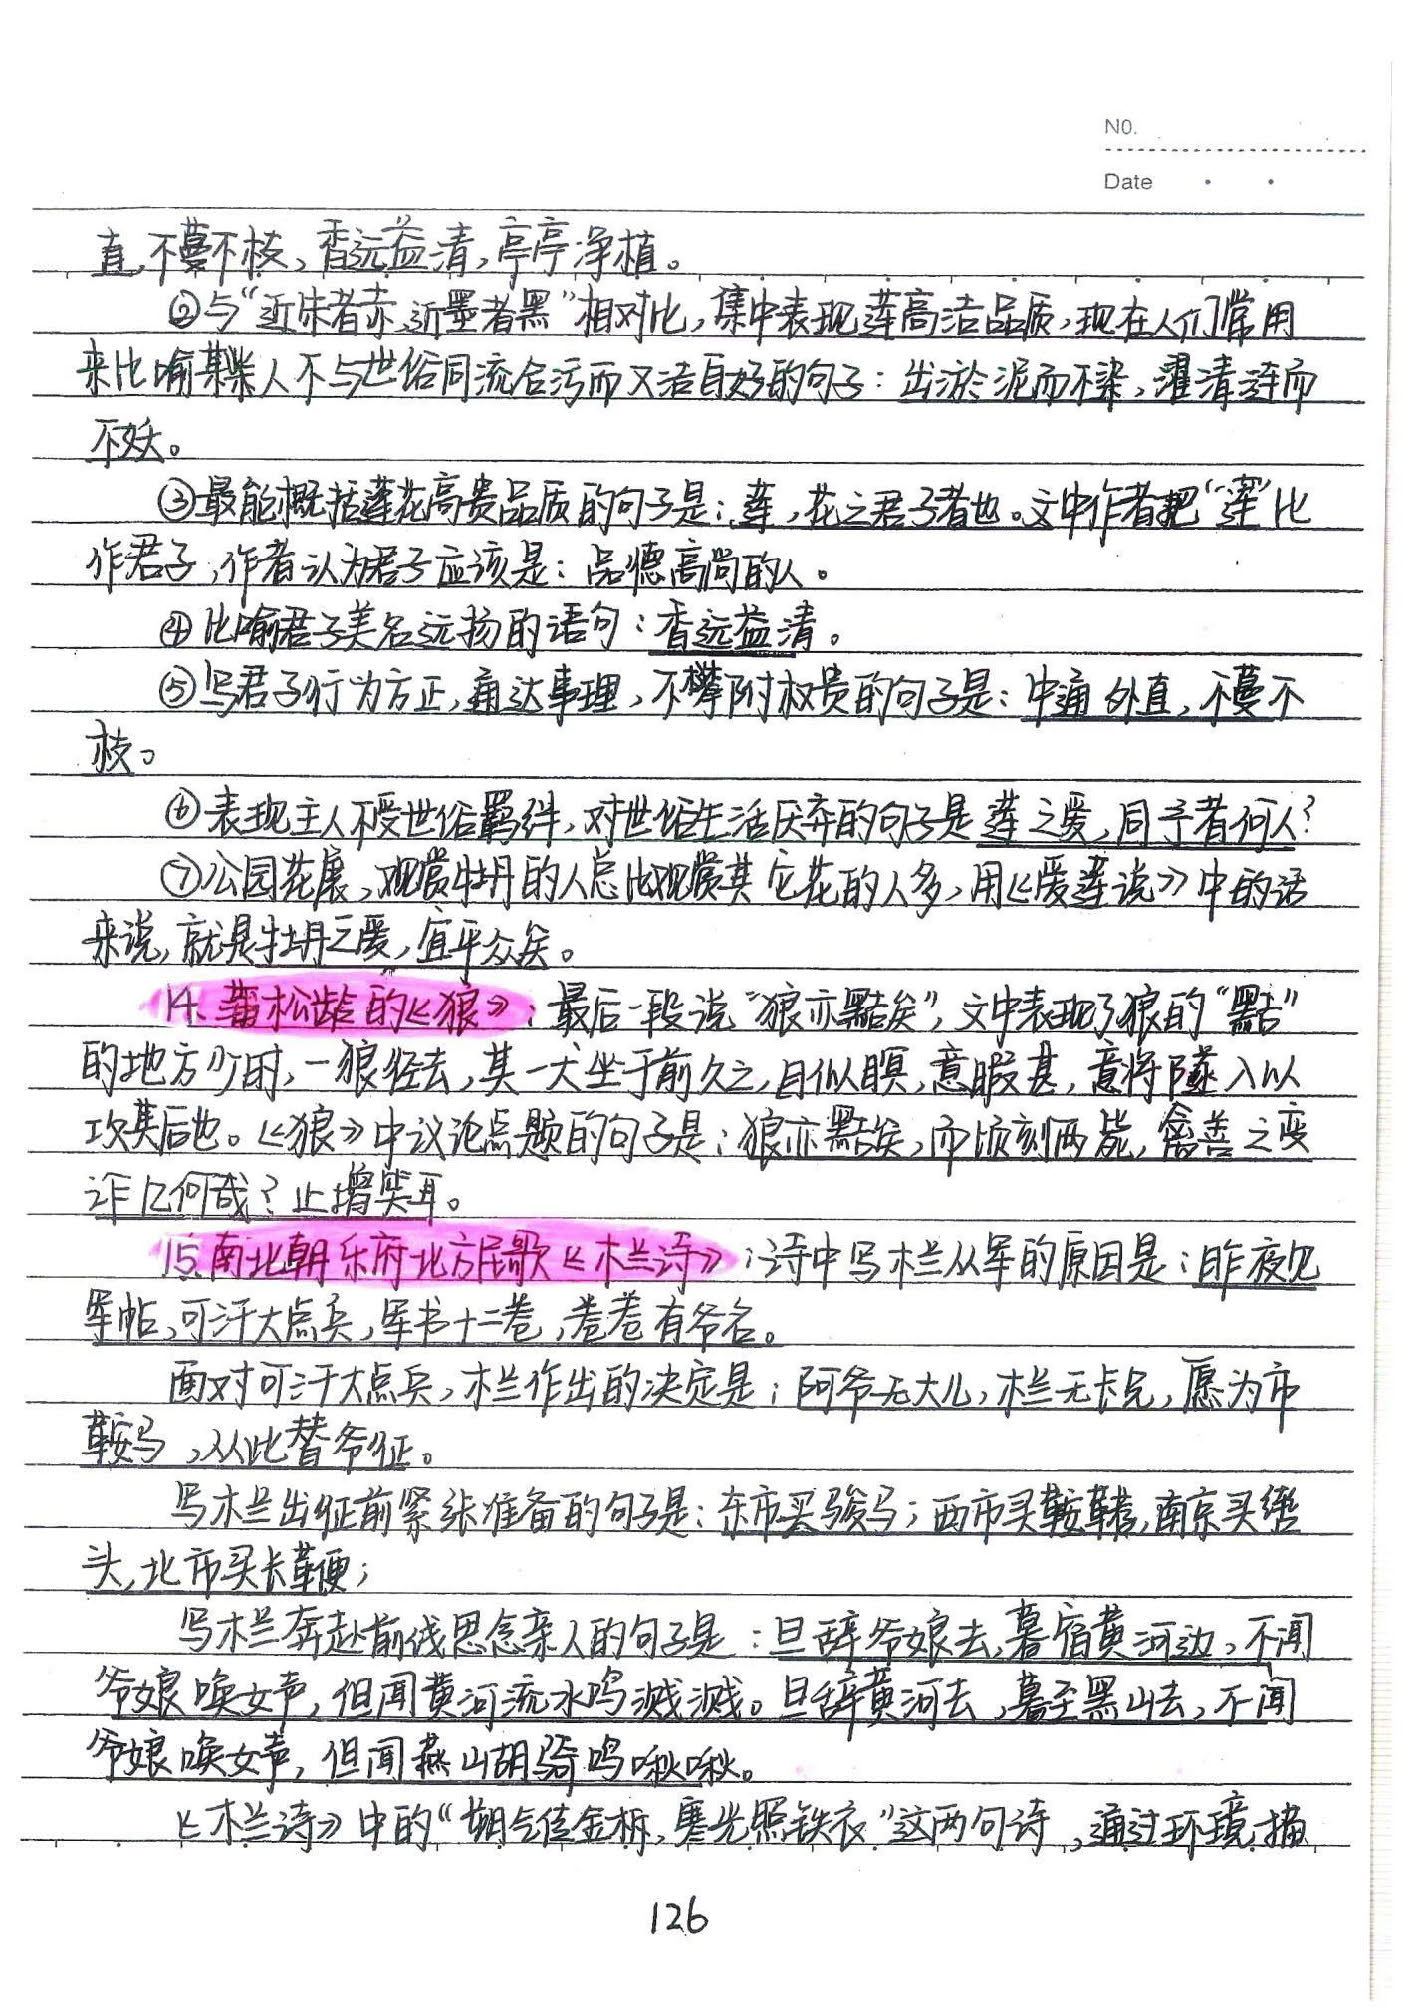 NO.
Date
直,不蔓不枝,香远益清,亭亭净植。
②与“近朱者赤,近墨者黑”相对比,集中表现莲高洁品质,现在人们常用
来比喻某些人不与世俗同流合污而又洁自好的句子:出淤泥而不染,濯清涟而
不妖。
③最能概括莲花高贵品质的句子是:莲,花之君子者也。文中作者把“莲”比
作君子,作者认为君子应该是:品德高尚的人。
④比喻君子美名远扬的语句:香远益清。
⑤写君子行为方正,通达事理,不攀附权贵的句子是:中通外直,不蔓不
枝。
⑥表现主人不受世俗羁绊,对世俗生活厌弃的句子是莲之爱,同予者何人?
⑦公园花展,观赏牡丹的人总比观赏其它花的人多,用《爱莲说》中的话
来说,就是牡丹之爱,宜乎众矣。
14、蒲松龄的《狼》:最后一段说“狼亦黠矣”,文中表现了狼的“黠”
的地方少时,一狼径去,其一犬坐于前久之,目似瞑,意暇甚,意将隧入以
攻其后也。《狼》中议论点题的句子是:狼亦黠矣,而顷刻两毙,禽兽之变
诈几何哉?止增笑耳。
15、南北朝乐府北方民歌《木兰诗》:诗中写木兰从军的原因是:昨夜见
军帖,可汗大点兵,军书十二卷,卷卷有爷名。
面对可汗大点兵,木兰作出的决定是:阿爷无大儿,木兰无长兄,愿为市
鞍马,从此替爷征。
写木兰出征前紧张准备的句子是:东市买骏马;西市买鞍鞯,南京买辔
头,北市买长鞭;
写木兰奔赴前线思念亲人的句子是:旦辞爷娘去,暮宿黄河边,不闻
爷娘唤女声,但闻黄河流水鸣溅溅。旦辞黄河去,暮至黑山去,不闻
爷娘唤女声,但闻燕山胡骑鸣啾啾。
《木兰诗》中的“朔气传金柝,寒光照铁衣”这两句诗,通过环境描
126